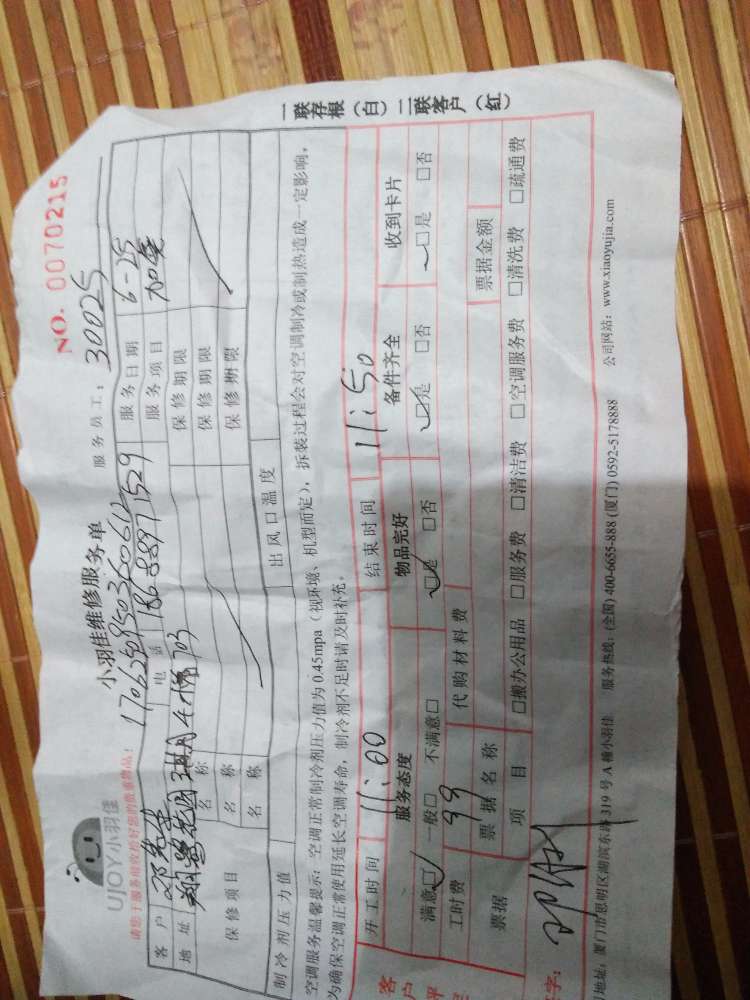 UJOY小羽佳
小羽佳维修服务单
NO. 0070215
请您于服务前收拾好您的贵重物品!
服务员工: 30025
客户 邓先生 电话 18688971529 服务日期 6-25
地址 翔鹭花园 服务项目 加氟
保修项目 名称 保修期限
名称 保修期限
名称 保修期限
制冷剂压力值 出风口温度
空调服务温馨提示: 空调正常制冷剂压力值为 0.45mpa (视环境、机型而定), 拆装过程会对空调制冷或制热造成一定影响,
为确保空调正常使用延长空调寿命, 制冷剂不足时请及时补充。
开工时间 11:00 结束时间 11:50
服务态度 物品完好 备件齐全 收到卡片
满意□ 一般□ 不满意□ □是 □否 □是 □否 □是 □否
工时费 99 代购材料费
票据 票据名称 票据金额
项目 □搬办公用品 □服务费 □清洁费 □空调服务费 □清洗费 □疏通费
字:
地址: 厦门市思明区湖滨东路 319 号 A 幢小羽佳 服务热线: (全国) 400-6655-888 (厦门) 0592-5178888 公司网站: www.xiaoyujia.com
一联存根(白) 二联客户(红)